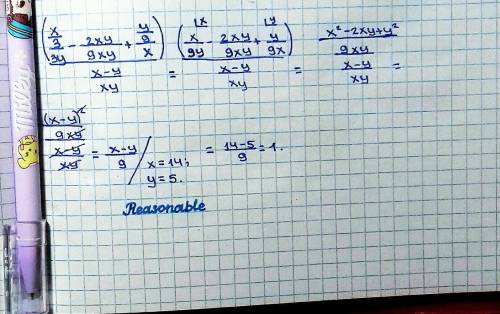 ((x/3)/(3y) - 2xy/(9xy) + (y/9)/x) / ((x-y)/(xy)) = (x/(9y) - 2xy/(9xy) + y/(9x)) / ((x-y)/(xy)) = ((x²-2xy+y²)/(9xy)) / ((x-y)/(xy)) =
((x-y)²/(9xy)) / ((x-y)/(xy)) = (x-y)/9 / x=14; y=5. = (14-5)/9 = 1.
Reasonable